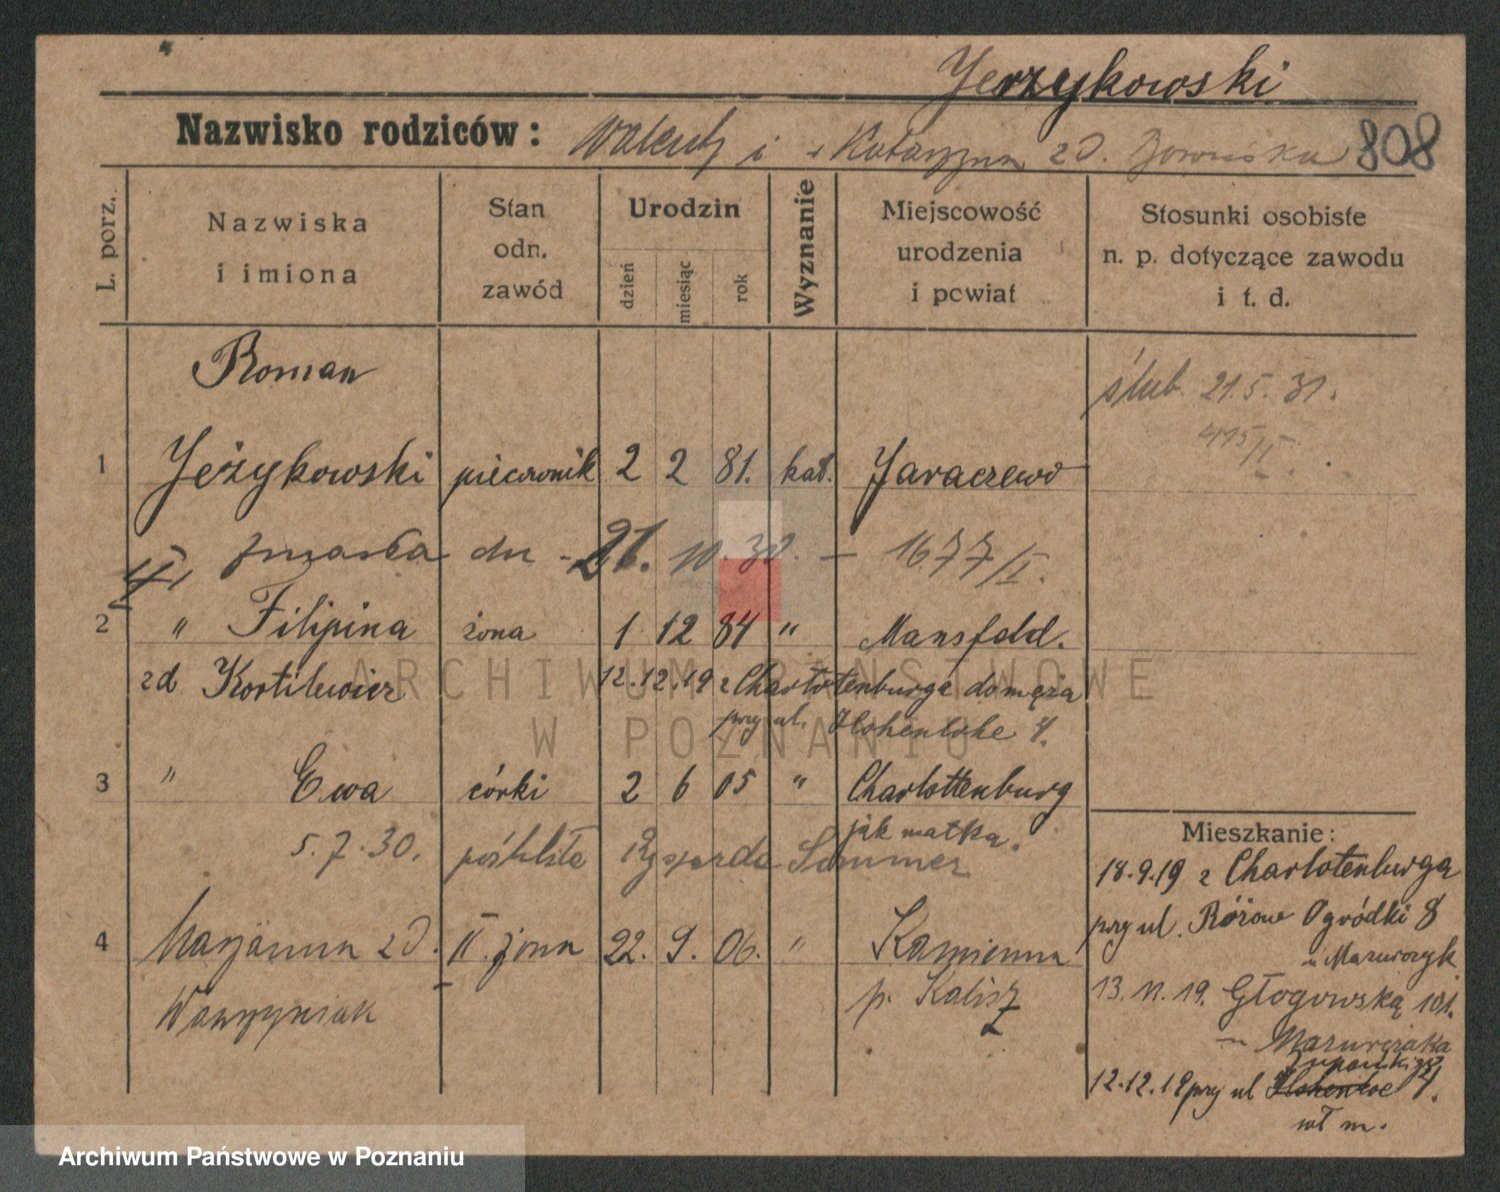 Jerzykowski
Nazwisko rodziców: Walenty i + Katarzyna zd. 808
L. porz.
Nazwiska
i imiona
Stan
odn.
zawód
Urodzin
dzień
miesiąc
rok
Wyznanie
Miejscowość
urodzenia
i powiat
Stosunki osobiste
n. p. dotyczące zawodu
i t. d.
Roman
ślub. 21.5.31.
415/I.
1 Jeżykowski piecownik 2 2 81. kat. Jaraczewo
zmarła dn - 21. 10. 30. - 1677/I.
2 " Filipina żona 1 12 84 " Mansfeld.
zd Kortilewicz 12.12.19 z Charlottenburga do męża
przy ul. Hohenlohe 4.
3 " Ewa córki 2 6 05 " Charlottenburg
jak matka.
5.7.30. poślubiła Ryszarda Sommer
4 Marjanna zd. II. żona 22. 9. 06. " Kamienna
Wawrzyniak p. Kalisz
Mieszkanie:
18.9.19 z Charlotenburga
przy ul. Różowe Ogródki 8
u Mazurczyk.
13.11.19. Głogowską 101.
- Mazurczaka
Żupańskiego
12.12.19 przy ul Hohenloe 4.
wł m.
ARCHIWUM PAŃSTWOWE
W POZNANIU
Archiwum Państwowe w Poznaniu